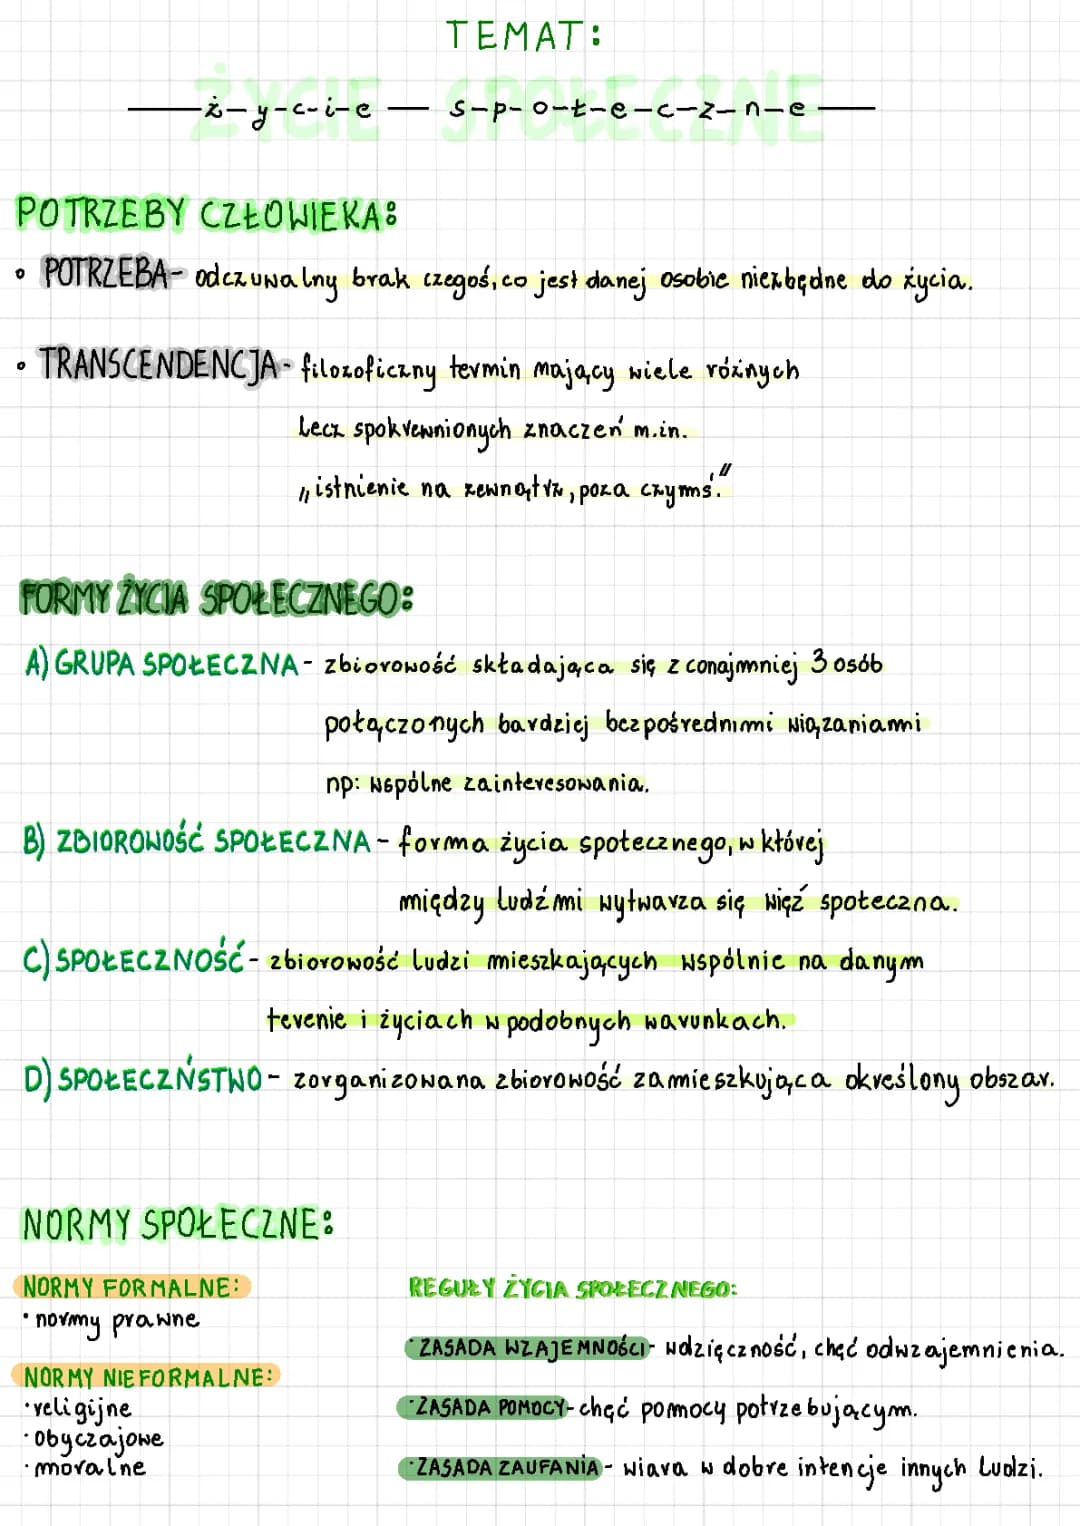 TEMAT:
ŻYCIE SPOŁECZNE
ż-y-c-i-e s-p-o-ł-e-c-z-n-e
POTRZEBY CZŁOWIEKA:
• POTRZEBA- odczuwalny brak czegoś, co jest danej osobie niezbędne do życia.
• TRANSCENDENCJA- filozoficzny termin mający wiele różnych
lecz spokrewnionych znaczeń m.in.
„istnienie na zewnątrz, poza czymś."
FORMY ŻYCIA SPOŁECZNEGO:
A) GRUPA SPOŁECZNA- zbiorowość składająca się z conajmniej 3 osób
połączonych bardziej bezpośrednimi wiązaniami
np: wspólne zainteresowania.
B) ZBIOROWOŚĆ SPOŁECZNA- forma życia społecznego, w której
między ludźmi wytwarza się więź społeczna.
C) SPOŁECZNOŚĆ- zbiorowość ludzi mieszkających wspólnie na danym
terenie i życiach w podobnych warunkach.
D) SPOŁECZŃSTWO- zorganizowana zbiorowość zamieszkująca określony obszar.
NORMY SPOŁECZNE:
NORMY FORMALNE:
• normy prawne
NORMY NIEFORMALNE:
• religijne
• obyczajowe
• moralne
REGUŁY ŻYCIA SPOŁECZNEGO:
• ZASADA WZAJEMNOŚCI- wdzięczność, chęć odwzajemnienia.
• ZASADA POMOCY- chęć pomocy potrzebującym.
• ZASADA ZAUFANIA- wiara w dobre intencje innych ludzi.